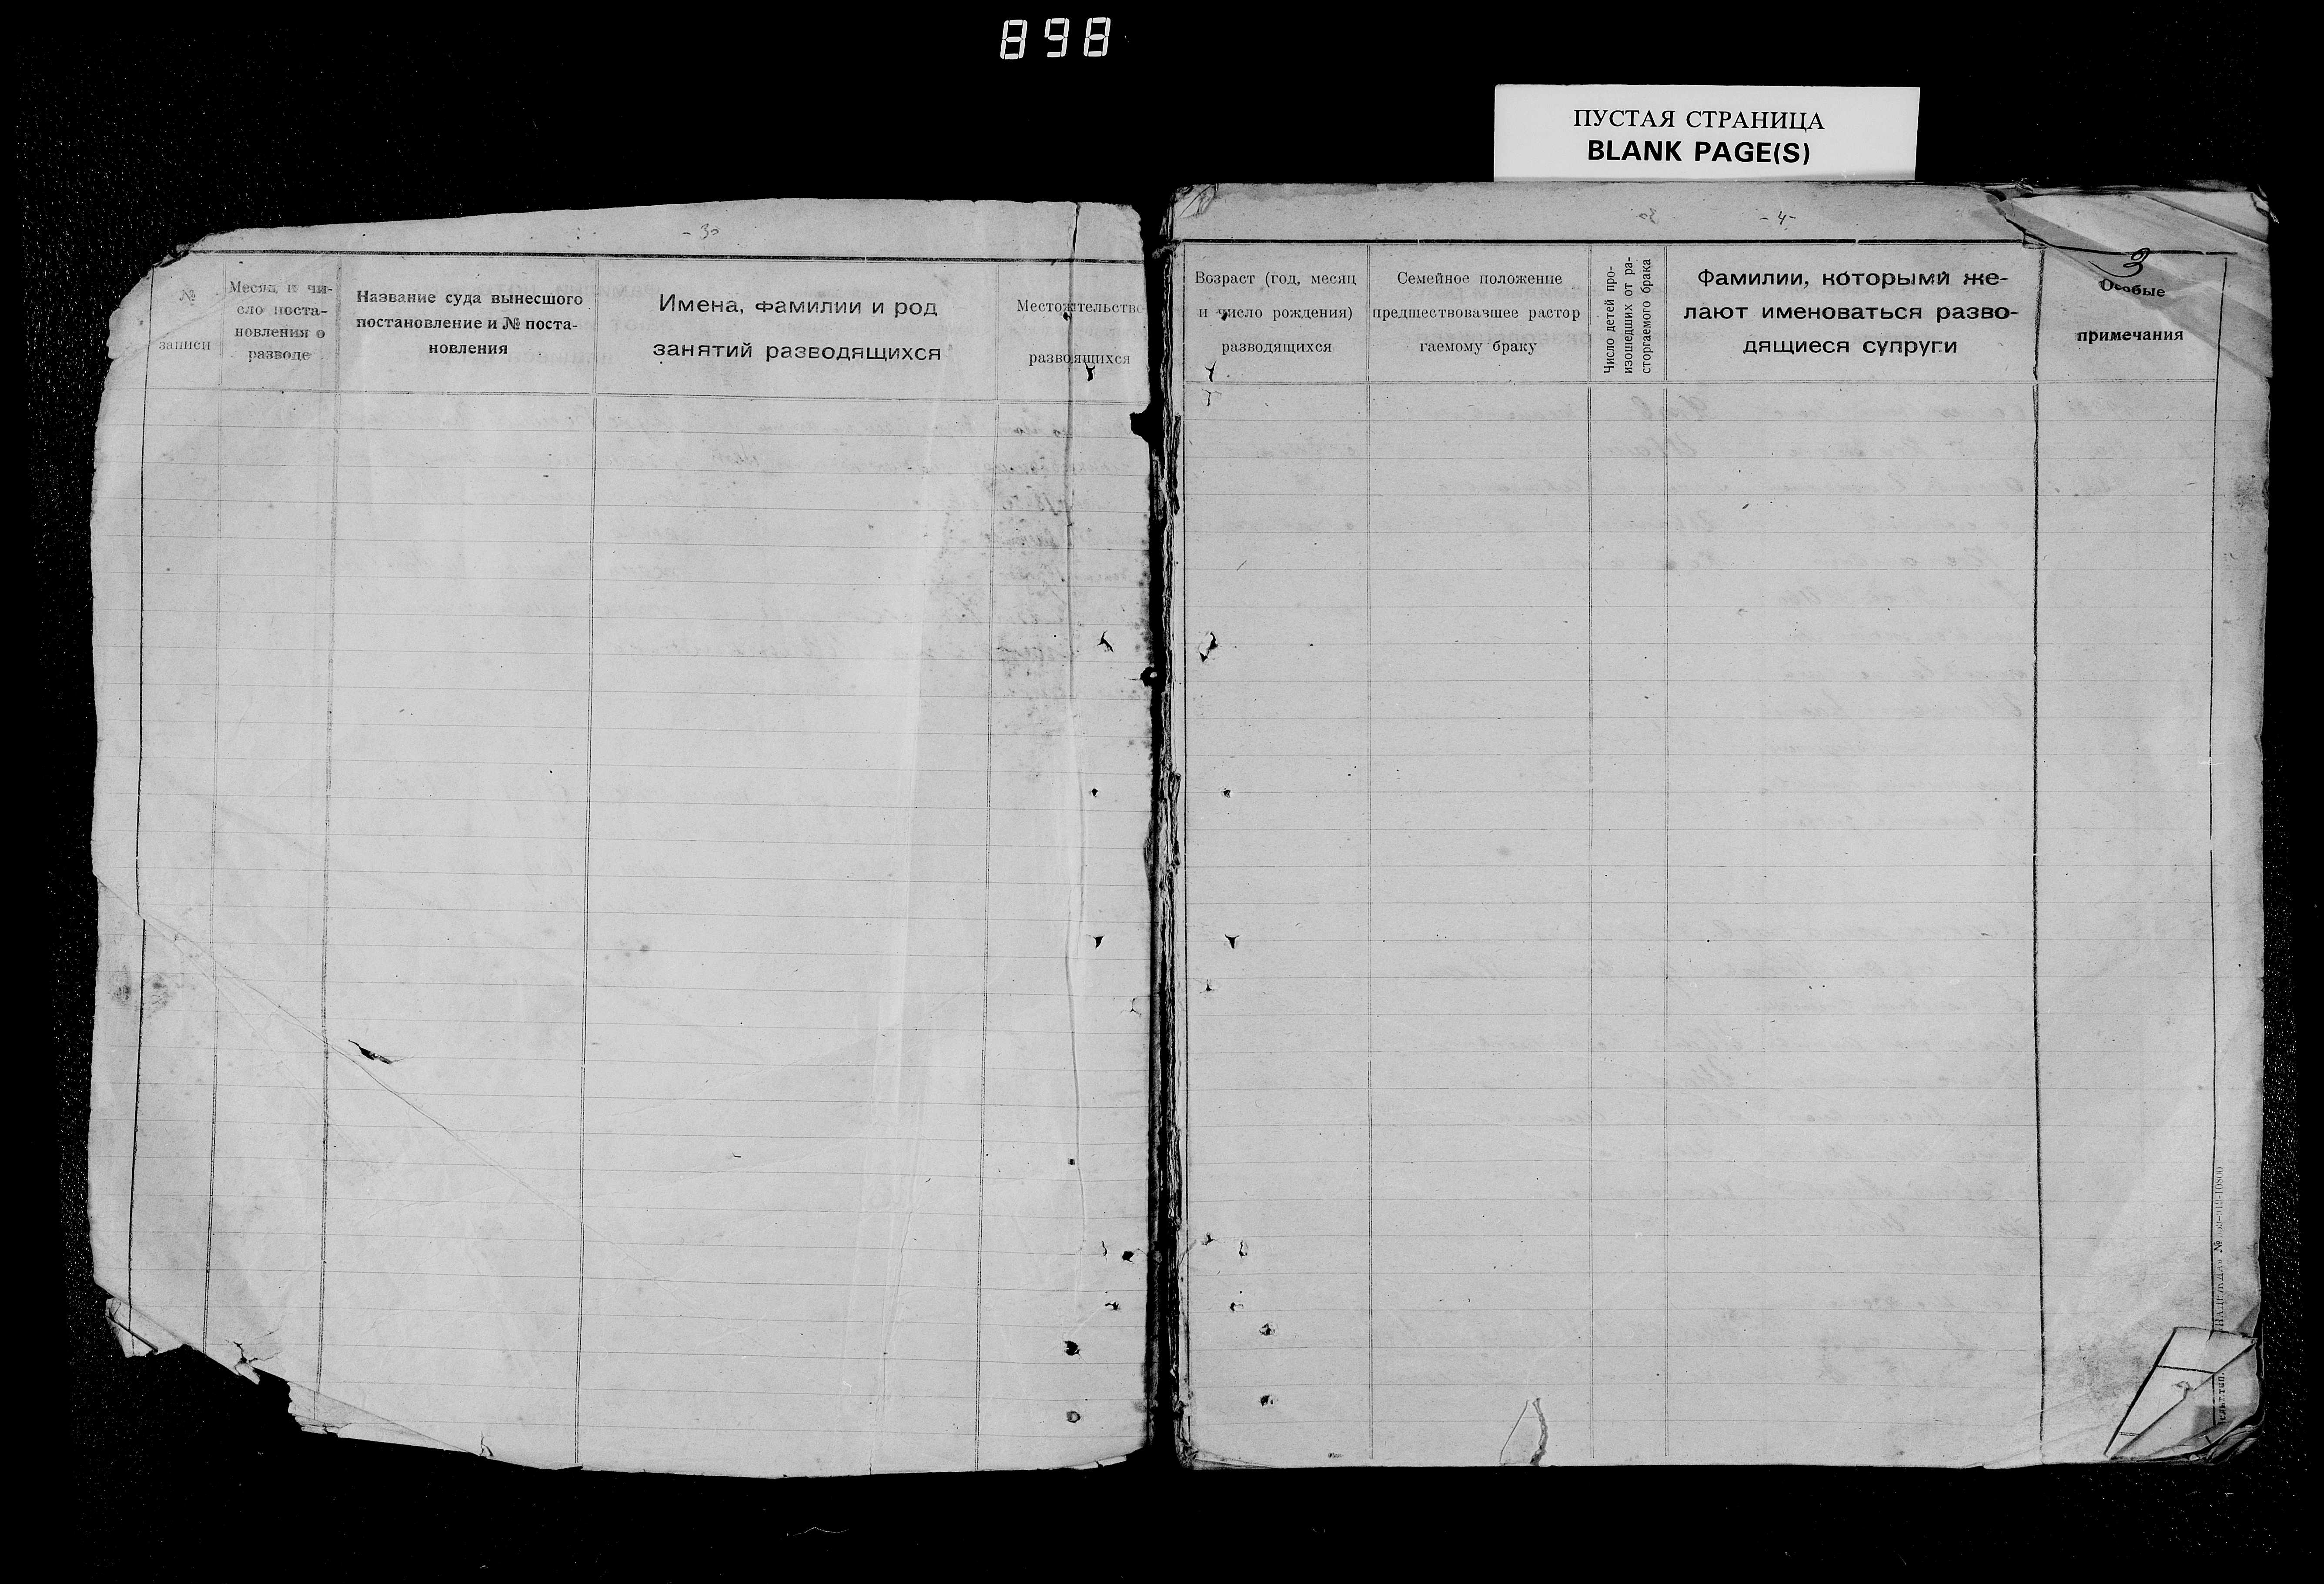 898
ПУСТАЯ СТРАНИЦА
BLANK PAGE(S)
- 3 -
№
записи
Месяц и чи-
сло поста-
новления о
разводе
Название суда вынесшого
постановление и № поста-
новления
Имена, фамилии и род
занятий разводящихся
Местожительство
разводящихся
- 4 -
Возраст (год, месяц
и число рождения)
разводящихся
Семейное положение
предшествовавшее растор
гаемому браку
Число детей про-
изошедших от ра-
сторгаемого брака
Фамилии, которыми же-
лают именоваться разво-
дящиеся супруги
3
Особые
примечания